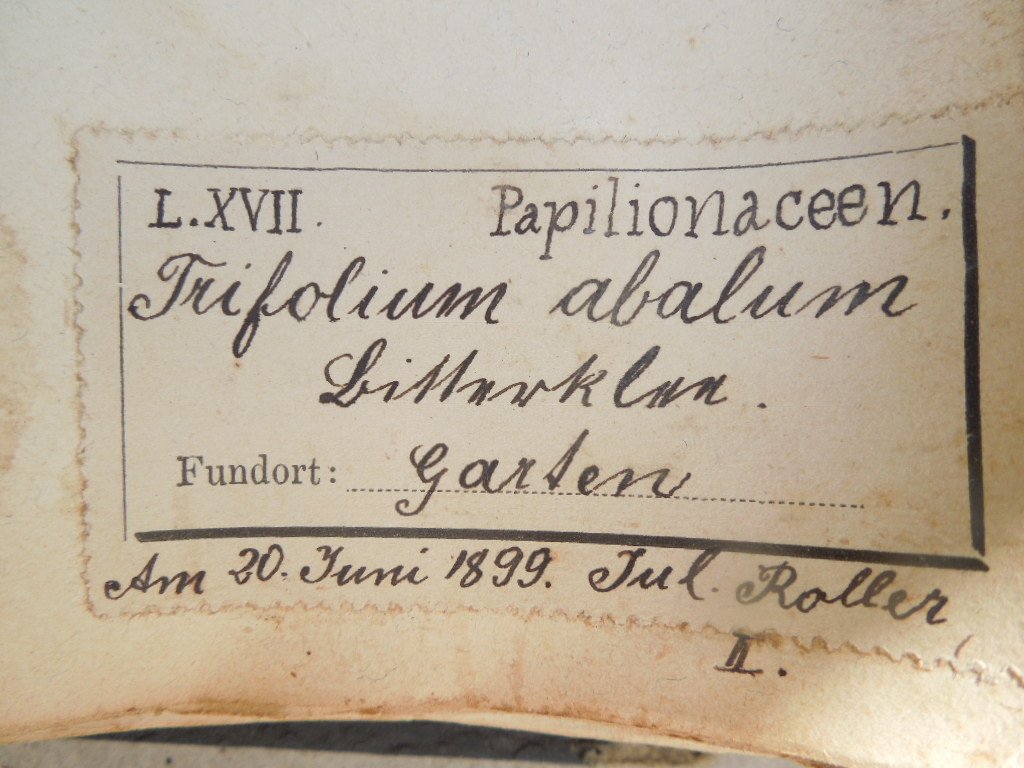 L.XVII. Papilionaceen.
Trifolium abalum
Bitterklee.
Fundort: Garten
Am 20. Juni 1899. Jul. Roller,
II.